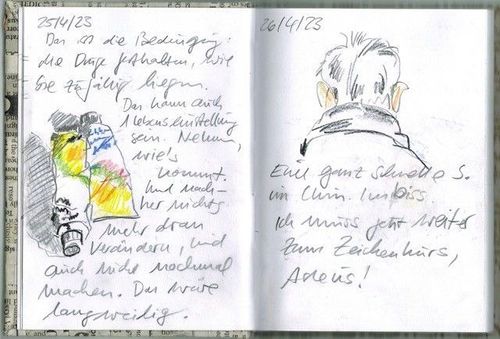 25/4/23
Das ist die Bedingung:
die Dinge festhalten, wie
sie zufällig liegen.
Das kann auch
1 Lebenseinstellung
sein. Nehmen,
wie's
kommt.
Und nach-
her nichts
mehr dran
verändern, und
auch nicht nochmal
machen. Das wäre
langweilig.
26/4/23
Ein ganz schneller S.
im Chin. Imbiss.
Ich muss jetzt weiter
zum Zeichenkurs,
Adeus!